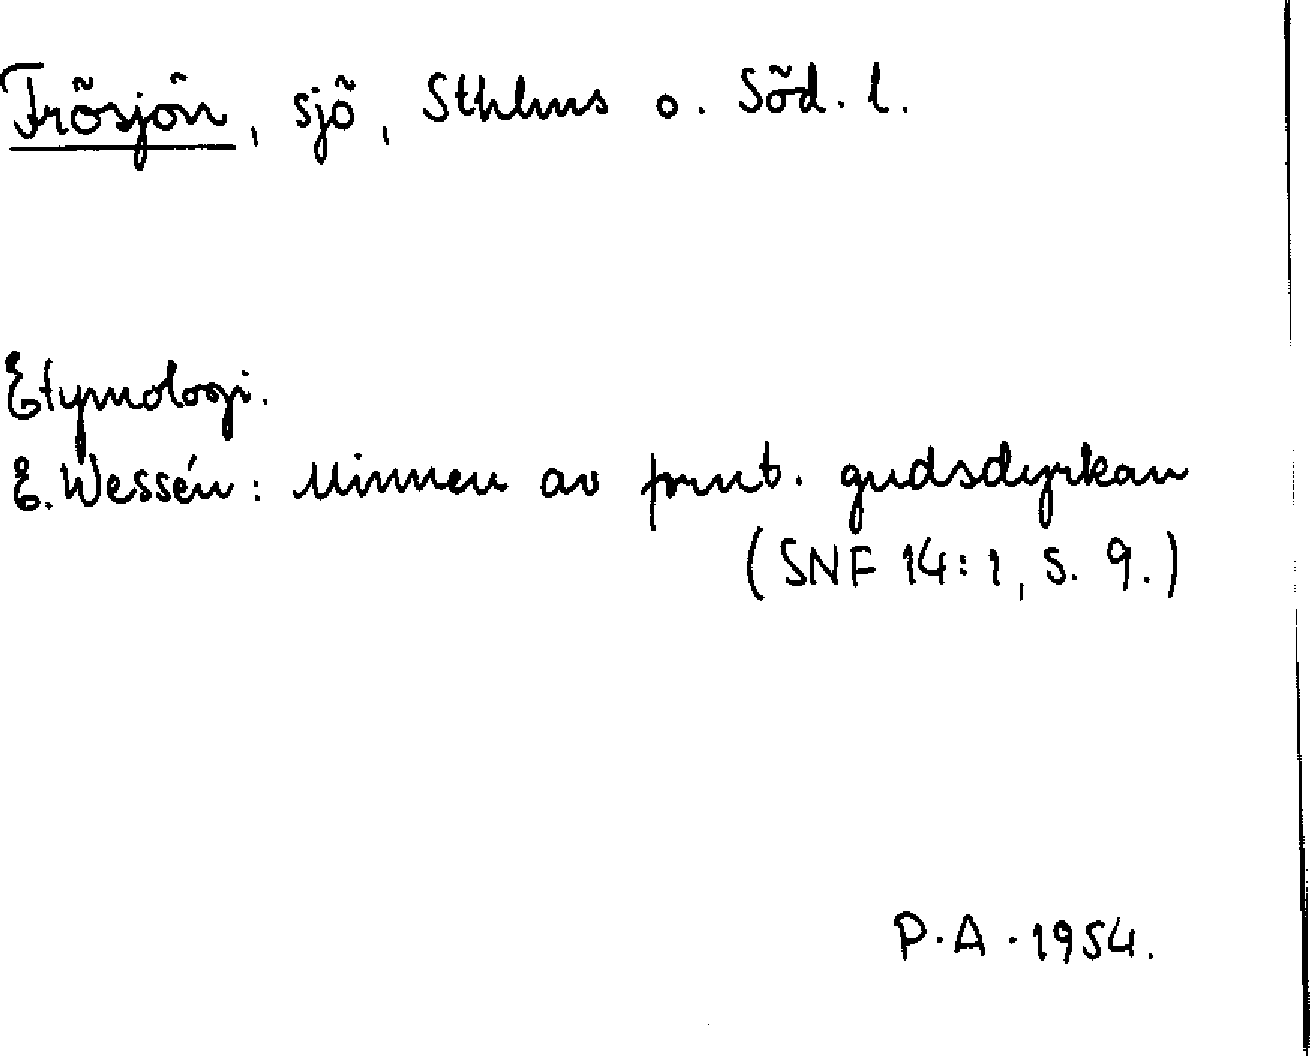 Frösjön, sjö, Sthlms o. Söd. l.
Etymologi.
E. Wessén: Minnen av fornt. gudsdyrkan
(SNF 14:1, s. 9.)
P.A. 1954.